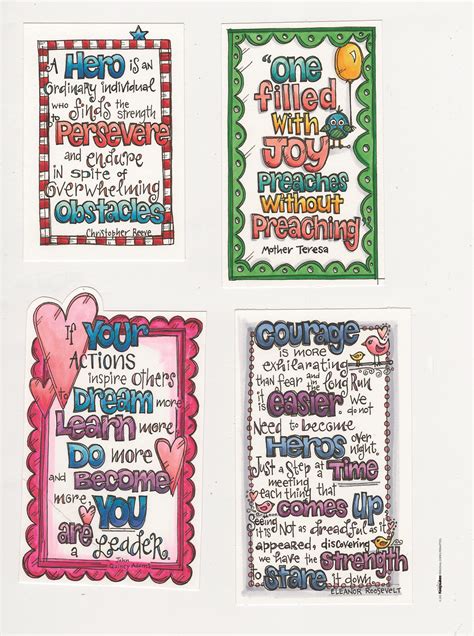 A HERO IS AN
ORDINARY INDIVIDUAL
WHO FINDS THE STRENGTH
TO PERSEVERE
AND ENDURE
IN SPITE OF
OVERWHELMING
OBSTACLES
Christopher Reeve
"ONE
filled
With
JOY
PREACHES
WITHOUT
PREACHING"
MOTHER TERESA
If YOUR
ACTIONS
inspire others
to DREAM more
LEARN more
DO more
and BECOME
more YOU
are
a LEADER.
Quincy Adams
COURAGE
is more
exhilarating
than fear and in the long Run
it is EASIER. We do not
Need to become
HEROS over night,
Just a Step at a TIME
meeting
each thing that
COMES UP
Seeing it is Not as dreadful as it
appeared, discovering
we have the STRENGTH
to STARE it down.
ELEANOR ROOSEVELT